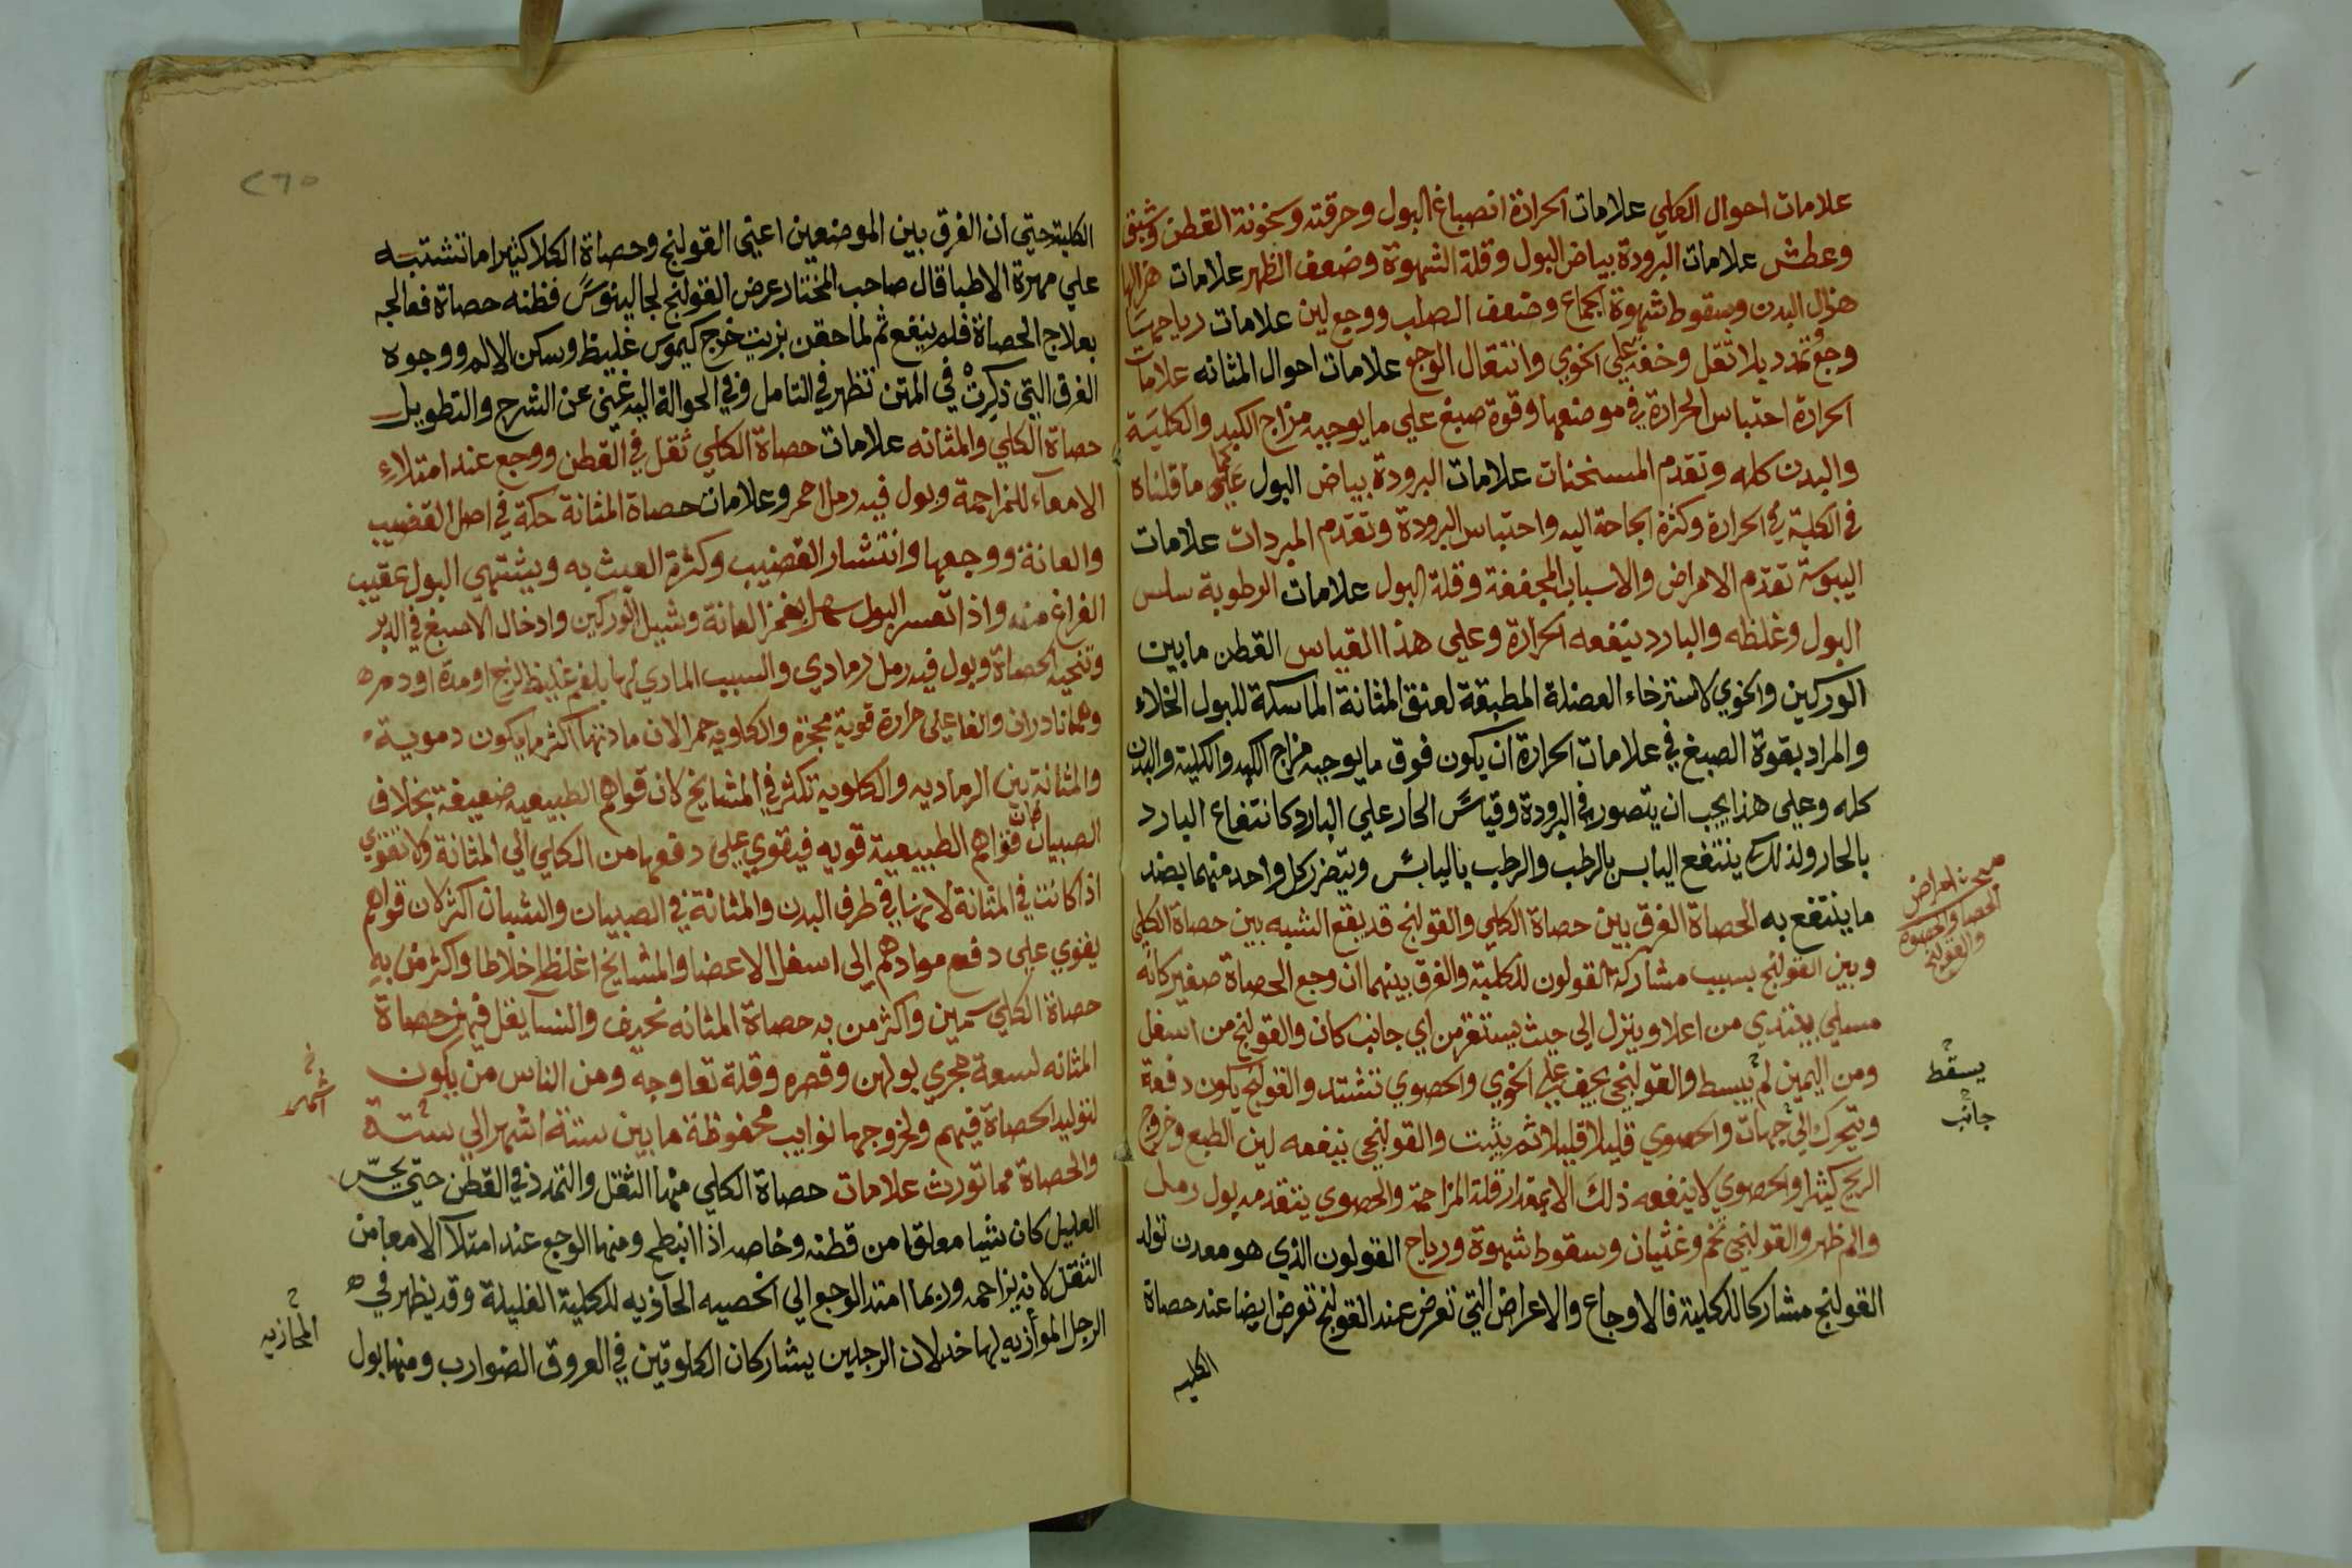 علامات احوال الكلي علامات الحرارة انصباغ البول وحرقته وسخونة القطن وشبق
وعطش علامات البرودة بياض البول وقلة الشهوة وضعف الظهر علامات هزالها
هزال البدن وسقوط شهوة الجماع وضعف الصلب ووجع لين علامات رياحها
وجع تمدد بلا ثقل وخفة علي الخوي وانتقال الوجع علامات احوال المثانه علامات
الحرارة احتباس الحرارة في موضعها وقوة صبغ علي ما يوجبه مزاج الكبد والكلية
والبدن كله وتقدم المسخنات علامات البرودة بياض البول علي ما قلناه
في الكلية في الحرارة وكثرة الحاجة اليه واحتباس البرودة وتقدم المبردات علامات
اليبوسة تقدم الامراض والاسباب المجففة وقلة البول علامات الرطوبة سلس
البول وغلظه والبارد ينفعه الحرارة وعلي هذا القياس القطن ما بين
الوركين والخوي لاسترخاء العضلة المطبقة لعنق المثانة الماسكة للبول الخلاء
والمراد بقوة الصبغ في علامات الحرارة ان يكون فوق ما يوجبه مزاج الكبد والكلية والبدن
كله وعلي هذا يجب ان يتصور في البرودة وقياس الحار علي البارد كانتفاع البارد
بالحار ولذلك ينتفع اليابس بالرطب والرطب باليابس ويتضرر كل واحد منهما بضد
ما ينتفع به الحصاة الفرق بين حصاة الكلي والقولنج قد يقع الشبه بين حصاة الكلي
وبين القولنج بسبب مشاركة القولون للكلية والفرق بينهما ان وجع الحصاة صغير كانه
مسلي يبتدي من اعلا وينزل الي حيث يستقر من اي جانب كان والقولنج من اسفل
ومن اليمين ثم يبسط والقولنجي يخف علي الخوي والحصوي تشتد والقولنج يكون دفعة
ويتحرك الي جهات والحصوي قليلا قليلا ثم يثبت والقولنجي ينفعه لين الطبع وخروج
الريح كثيرا والحصوي لا ينفعه ذلك الا بمقدار قلة المزاحمة والحصوي يتقدمه بول رمل
والم ظهر والقولنجي تخم وغثيان وسقوط شهوة ورياح القولون الذي هو معدن تولد
القولنج مشاركا للكلية فالاوجاع والاعراض التي تعرض عند القولنج تعرض ايضا عند حصاة
الكليه
مبحث امراض
الحصاة والحصوه
والقولنج
يسقط
جانب
٢٦٥
الكلية حتي ان الفرق بين الموضعين اعني القولنج وحصاة الكلا كثيرا ما تشتبه
علي مهرة الاطبا قال صاحب المختار عرض القولنج لجالينوس فظنه حصاة فعالجه
بعلاج الحصاة فلم ينفع ثم لما حقن بزيت خرج كيموس غليظ وسكن الالم ووجوه
الفرق التي ذكرت في المتن تظهر في التامل وفي الحوالة اليه غني عن الشرح والتطويل
حصاة الكلي والمثانه علامات حصاة الكلي ثقل في القطن ووجع عند امتلاء
الامعاء للمزاحمة وبول فيه رمل احمر وعلامات حصاة المثانة حكة في اصل القضيب
والعانة ووجعها وانتشار القضيب وكثرة العبث به ويشتهي البول عقيب
الفراغ منه واذا تعسر البول سهل بغمز العانة وشيل الوركين وادخال الاصبغ في الدبر
وتنحيه الحصاة وبول فيه رمل رمادي والسبب المادي لها بلغم غليظ لزج او مدة او دم
وهما نادران والفاعلي حرارة قوية محجرة والكلويه حمر الان مادتها اكثر ما يكون دموية
والمثانة بين الرماديه والكلوية تكثر في المشايخ لان قواهم الطبيعيه ضعيفة بخلاف
الصبيان فان قواهم الطبيعية قويه فيقوي علي دفعها من الكلي الي المثانة ولا تقوي
اذا كانت في المثانة لانها في طرف البدن والمثانة في الصبيان والشبان اكثر لان قواهم
يقوي علي دفع موادهم الي اسفل الاعضا والمشايخ اغلظ اخلاطا واكثر من به
حصاة الكلي سمين واكثر من به حصاة المثانه نحيف والنسا يقل فيهن حصاة
المثانه لسعة مجري بولهن وقصره وقلة تعاوجه ومن الناس من يكون
لتوليد الحصاة فيهم ولخروجها نوايب محفوظة ما بين ستة اشهر الي ستة
والحصاة مما تورث علامات حصاة الكلي منها الثقل والتمدد في القطن حتي يحس
العليل كان شيا معلقا من قطنه وخاصه اذا انبطح ومنها الوجع عند امتلا الامعا من
الثقل لانه يزاحمه وربما امتد الوجع الي الخصيه المحاذيه للكلية العليلة وقد يظهر في
الرجل الموازيه لها خدر لان الرجلين يشاركان الكلوتين في العروق الضوارب ومنها بول
اشهر
المحاذيه